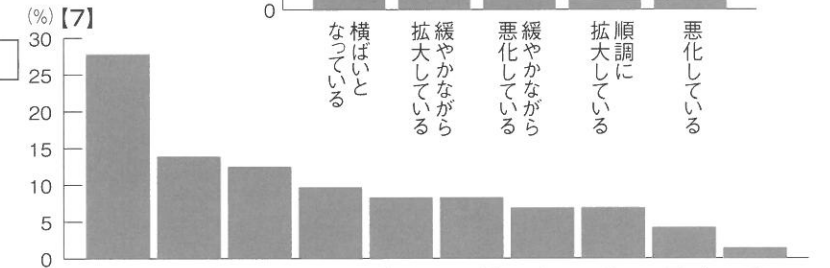 0
横ばいと
なっている
緩やかながら
拡大している
緩やかながら
悪化している
順調に
拡大している
悪化している
(%)【7】
30
25
20
15
10
5
0